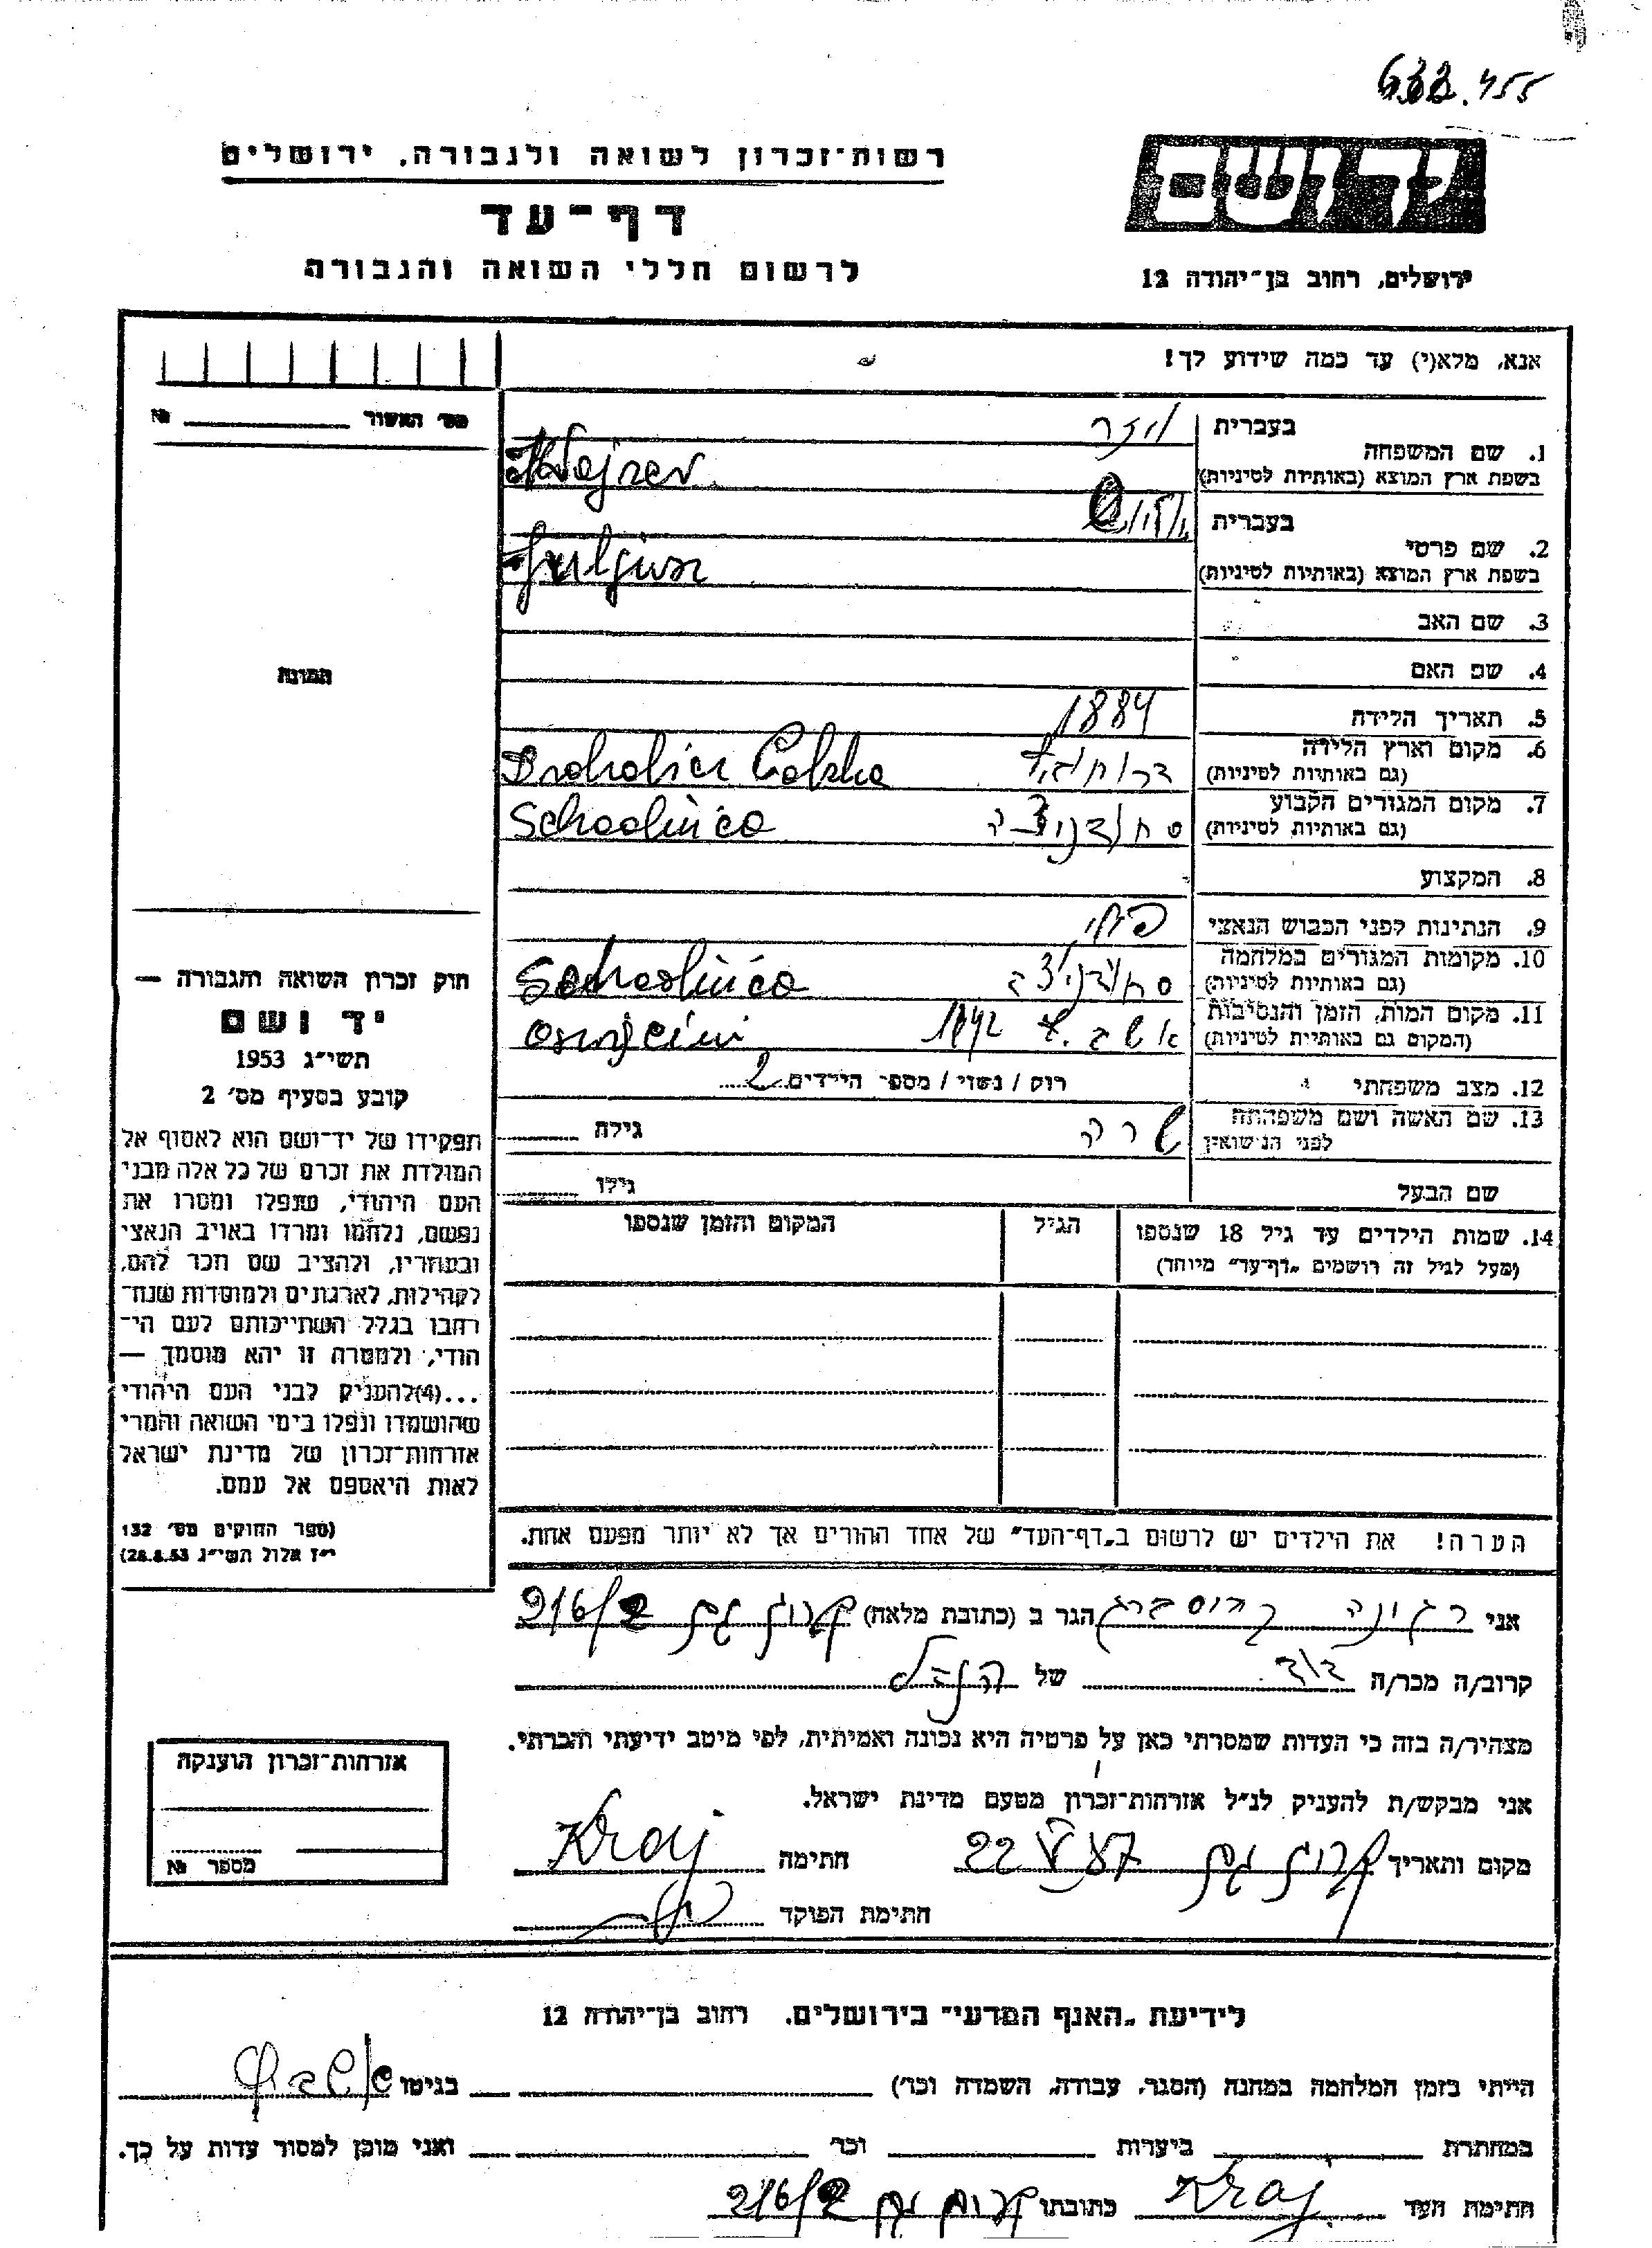 633.455
רשות־זכרון לשואה ולגבורה, ירושלים
יד ושם
דף־עד
לרשום חללי השואה והגבורה
ירושלים, רחוב בן־יהודה 12
אנא, מלא(י) עד כמה שידוע לך!
מס׳ האשור № 
1. שם המשפחה
בעברית
בשפת ארץ המוצא (באותיות לטיניות)
2. שם פרטי
בעברית
בשפת ארץ המוצא (באותיות לטיניות) Juljusz
3. שם האב
4. שם האם
תמונה
5. תאריך הלידה 1884
6. מקום וארץ הלידה
(גם באותיות לטיניות)
7. מקום המגורים הקבוע
(גם באותיות לטיניות) Schodnica
8. המקצוע
9. הנתינות לפני הכבוש הנאצי
10. מקומות המגורים במלחמה
(גם באותיות לטיניות) Schodnica
11. מקום המות, הזמן והנסיבות 1942
(המקום גם באותיות לטיניות)
12. מצב משפחתי רוק / נשוי / מספר הילדים 2
13. שם האשה ושם משפחתה שרה גילה
לפני הנישואין
שם הבעל גילו
14. שמות הילדים עד גיל 18 שנספו הגיל המקום והזמן שנספו
(מעל לגיל זה רושמים „דף־עד״ מיוחד)
חוק זכרון השואה והגבורה —
יד ושם
תשי״ג 1953
קובע בסעיף מס׳ 2
תפקידו של יד־ושם הוא לאסוף אל
המולדת את זכרם של כל אלה מבני
העם היהודי, שנפלו ומסרו את
נפשם, נלחמו ומרדו באויב הנאצי
ובעוזריו, ולהציב שם וזכר להם,
לקהילות, לארגונים ולמוסדות שנח־
רבו בגלל השתייכותם לעם הי־
הודי, ולמטרה זו יהא מוסמך —
...(4)להעניק לבני העם היהודי
שהושמדו ונפלו בימי השואה והמרי
אזרחות־זכרון של מדינת ישראל
לאות היאספם אל עמם.
(ספר החוקים מס׳ 132
י״ז אלול תשי״ג 28.8.53)
הערה! את הילדים יש לרשום ב„דף־העד״ של אחד ההורים אך לא יותר מפעם אחת.
אני הגר ב (כתובת מלאה) קרית גת 216/2
קרוב/ה מכר/ה דוד של
מצהיר/ה בזה כי העדות שמסרתי כאן על פרטיה היא נכונה ואמיתית, לפי מיטב ידיעתי והכרתי.
אני מבקש/ת להעניק לנ״ל אזרחות־זכרון מטעם מדינת ישראל.
מקום ותאריך קרית גת חתימה Kraj
חתימת הפוקד
אזרחות־זכרון הוענקה
מספר №
לידיעת „האגף המדעי״ בירושלים, רחוב בן־יהודה 12
הייתי בזמן המלחמה במחנה (הסגר, עבודה, השמדה וכר׳) בגיטו
במחתרת ביערות וכר ואני מוכן למסור עדות על כך.
חתימת העד Kraj כתובתו קרית גת 216/2